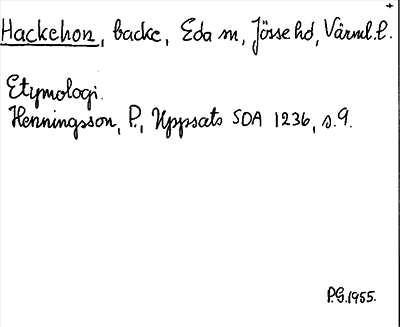 Hackehon, backe, Eda sn, Jösse hd, Värml. l.
Etymologi.
Henningsson, P., Uppsats SOA 1236, s. 9.
P.G. 1955.